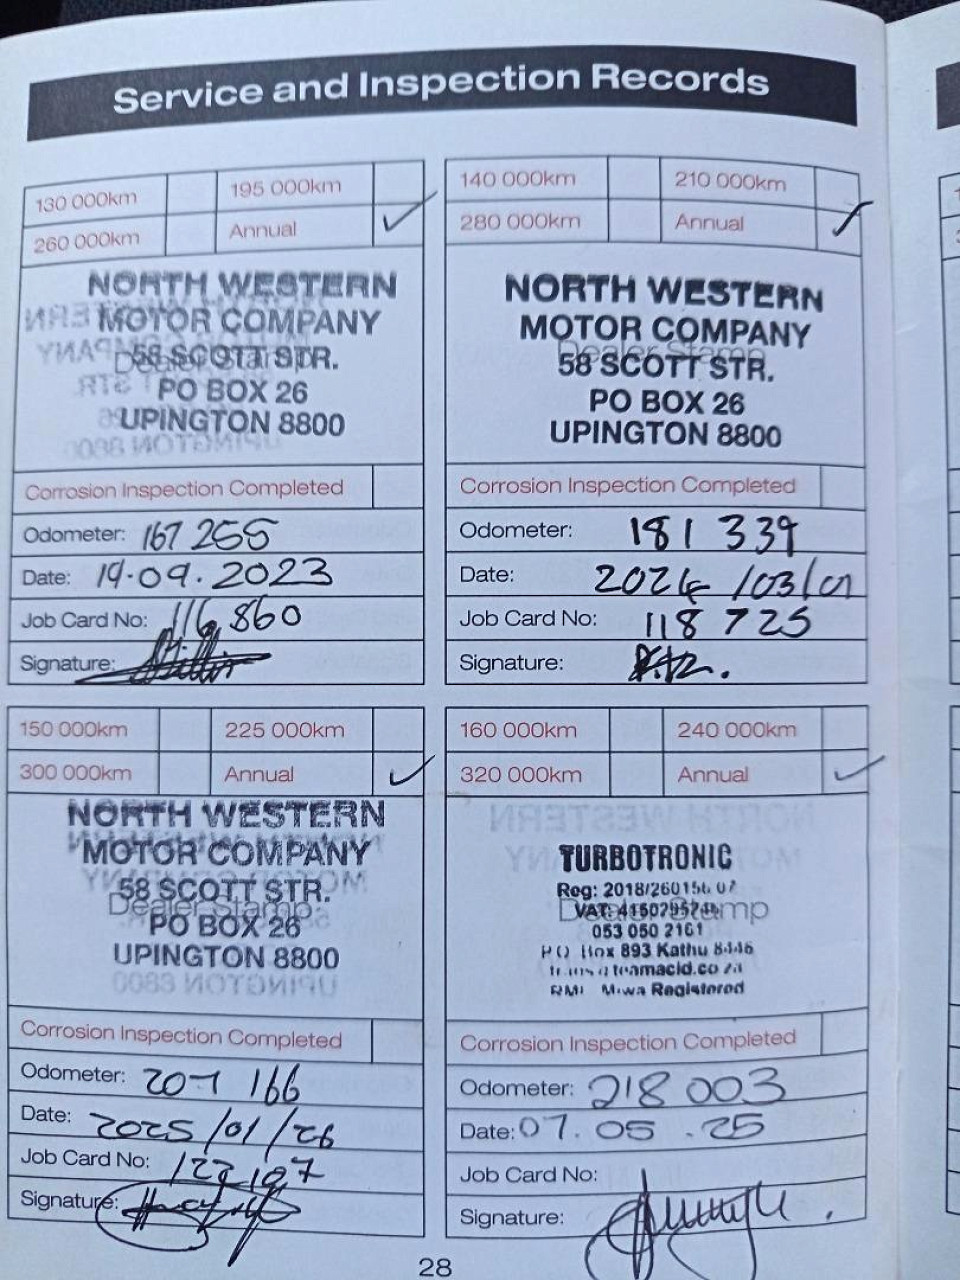 Service and Inspection Records
130 000km 195 000km
260 000km Annual ✓
NORTH WESTERN
MOTOR COMPANY
58 SCOTT STR.
Dealer Stamp
PO BOX 26
UPINGTON 8800
Corrosion Inspection Completed
Odometer: 167 255
Date: 19.09.2023
Job Card No: 116 860
Signature:
140 000km 210 000km
280 000km Annual ✓
NORTH WESTERN
MOTOR COMPANY
Dealer Stamp
58 SCOTT STR.
PO BOX 26
UPINGTON 8800
Corrosion Inspection Completed
Odometer: 181 339
Date: 2024/03/01
Job Card No: 118 725
Signature:
150 000km 225 000km
300 000km Annual ✓
NORTH WESTERN
MOTOR COMPANY
58 SCOTT STR.
Dealer Stamp
PO BOX 26
UPINGTON 8800
Corrosion Inspection Completed
Odometer: 207 166
Date: 2025/01/26
Job Card No:
Signature:
160 000km 240 000km
320 000km Annual ✓
TURBOTRONIC
Reg: 2018/260156 07
Dealer Stamp
VAT:
053 050 2161
PO Box 893 Kathu 8446
RMI Miwa Registered
Corrosion Inspection Completed
Odometer: 218 003
Date: 07.05.25
Job Card No:
Signature:
28